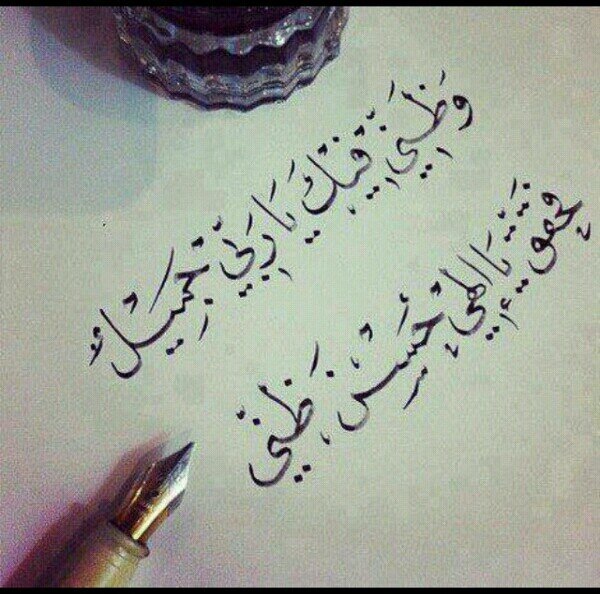 وَظَنِّي فِيكَ يَا رَبِّي جَمِيلٌ
فحقق يَا إِلٰهِي حُسْنَ ظَنِّي